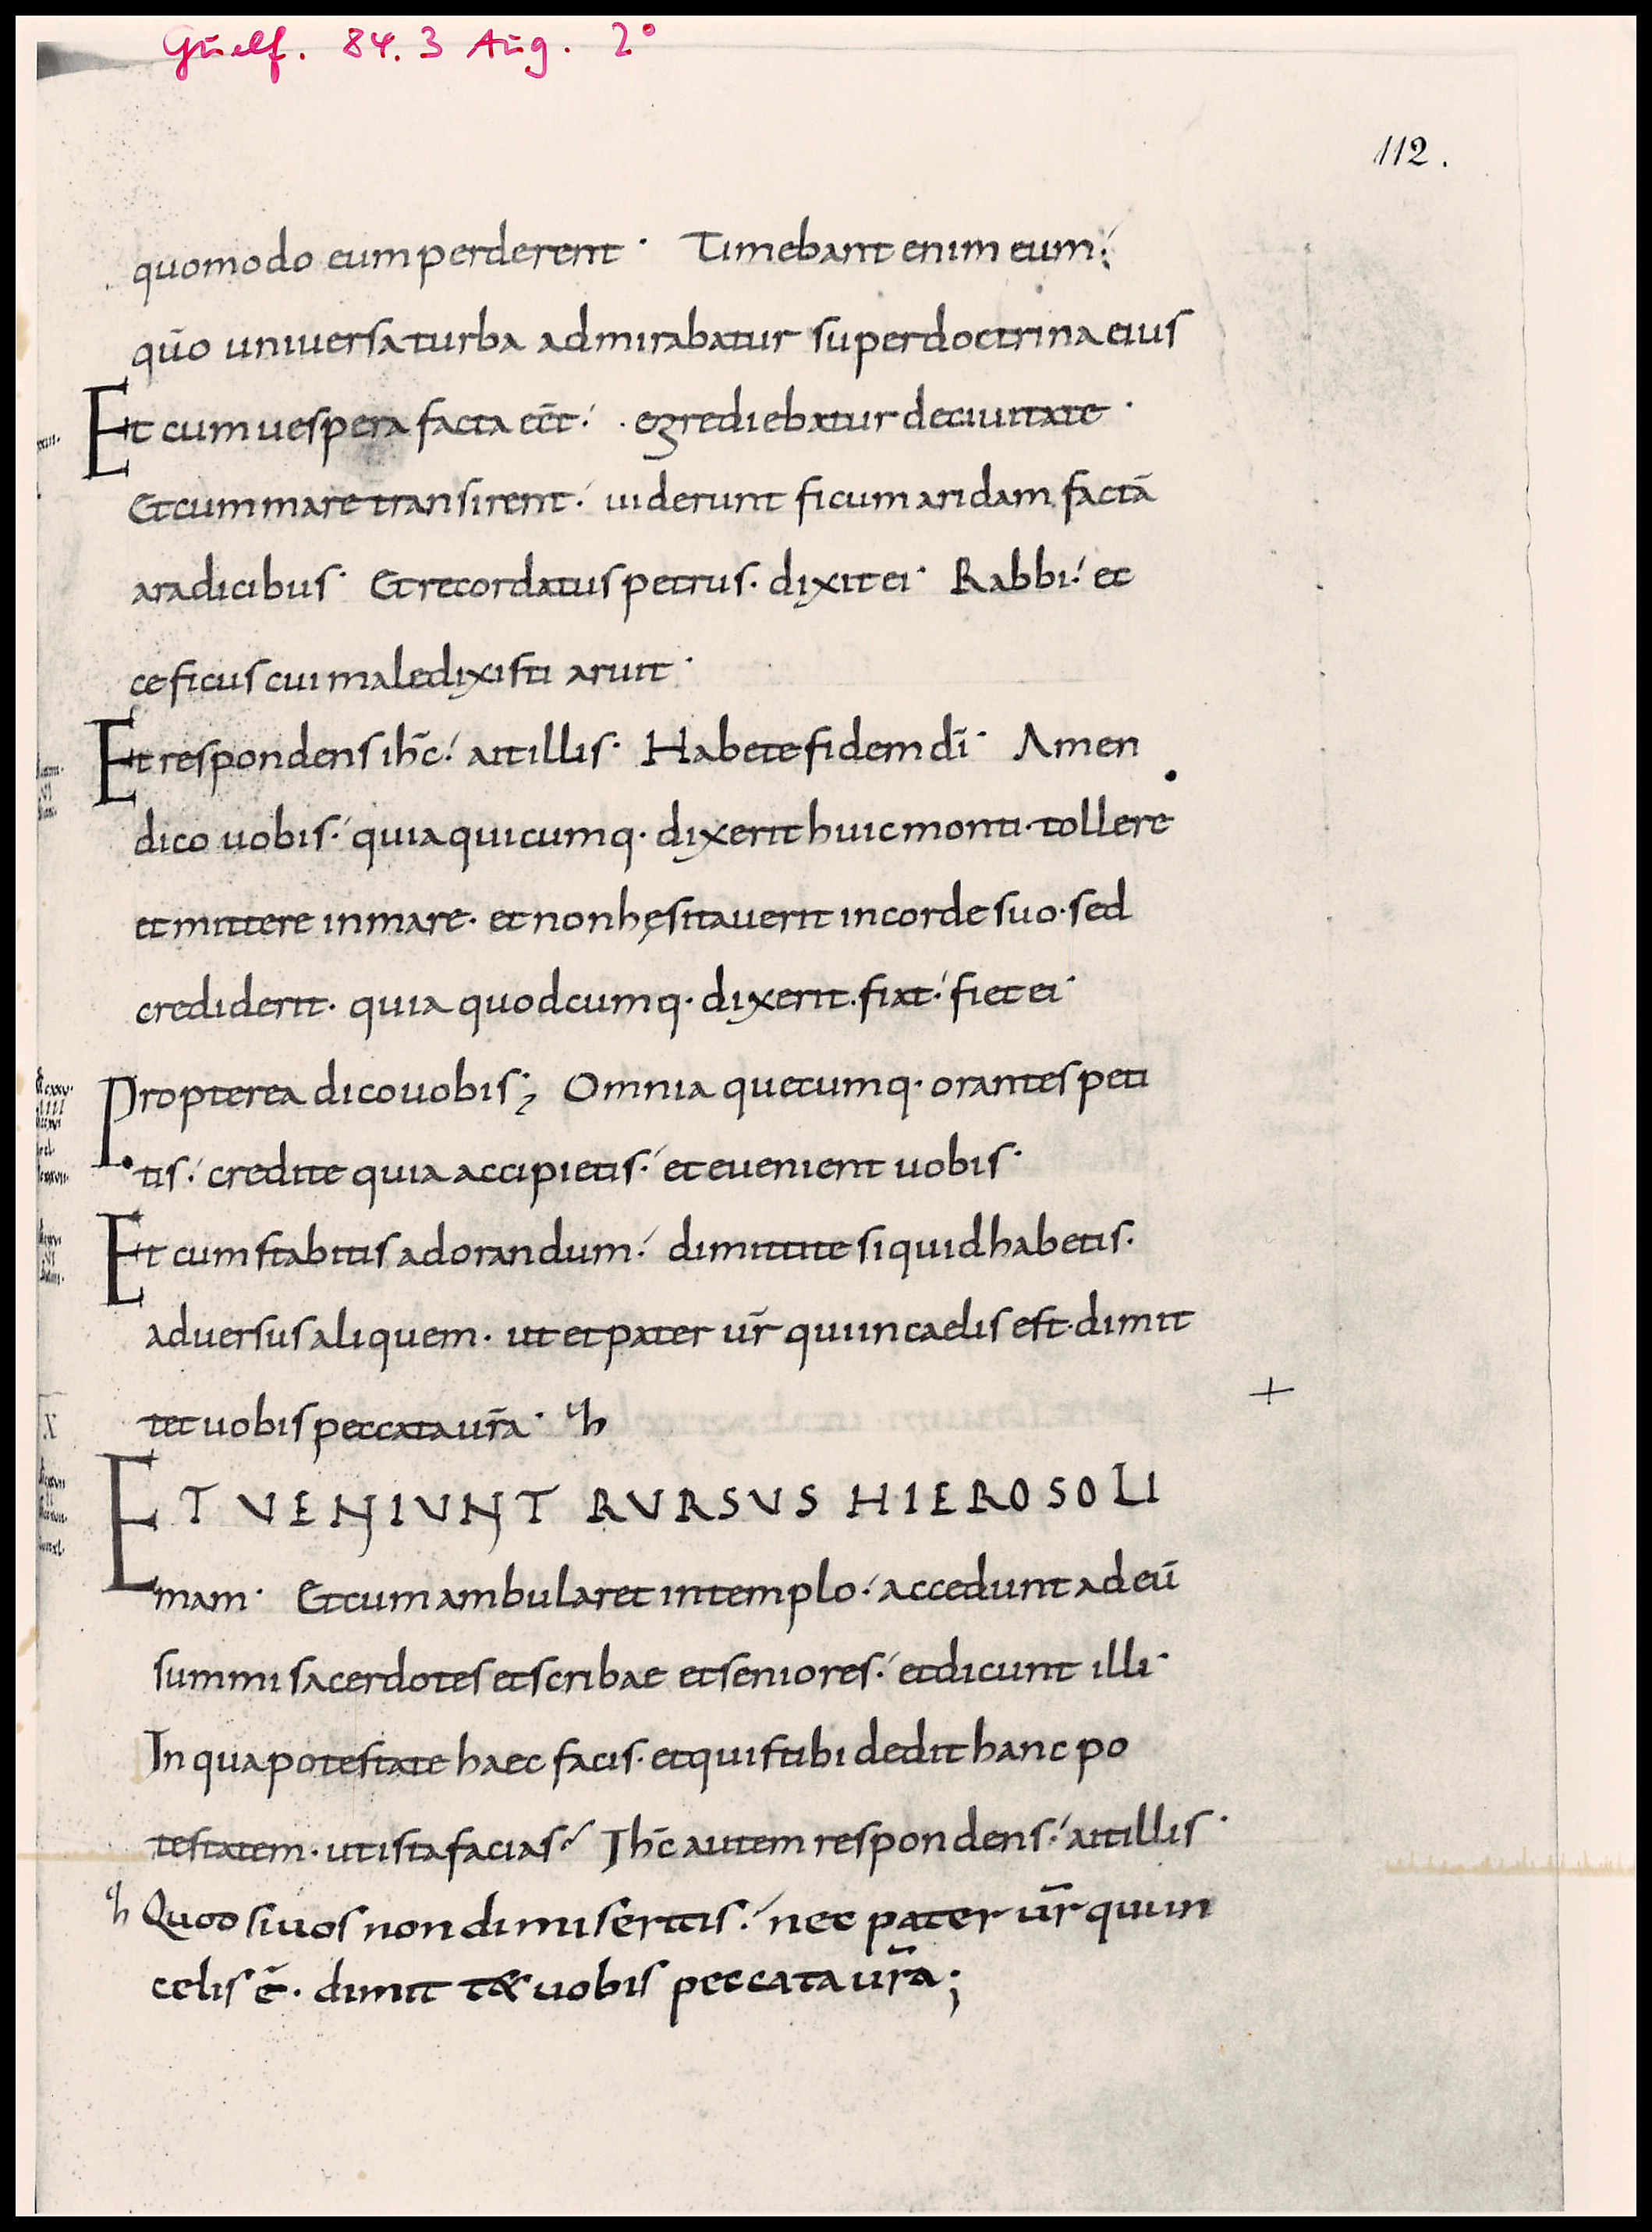 Guelf. 84.3 Aug. 2°
112.
quomodo eum perderent · Timebant enim eum ·
qūo uniuersa turba admirabatur super doctrina eius
Et cum uespera facta eēt · egrediebatur de ciuitate ·
Et cum mare transirent · uiderunt ficum aridam factā
a radicibus · Et recordatus petrus · dixit ei · Rabbi · ec
ce ficus cui maledixisti aruit ·
Et respondens ihc̄ · ait illis · Habete fidem dī · Amen
dico uobis · quia quicumq · dixerit huic monti · tollere
et mittere in mare · et non hęsitauerit in corde suo · sed
crediderit · quia quodcumq · dixerit · fiat · fiet ei ·
Propterea dico uobis ; Omnia quecumq · orantes peti
tis · credite quia accipietis · et euenient uobis ·
Et cum stabitis ad orandum · dimittite si quid habetis ·
aduersus aliquem · ut et pater ur̄ qui in caelis est · dimit
tet uobis peccata ur̄a ·
X
ET VENIUNT RVRSVS HIEROSOLI
mam · Et cum ambularet in templo · accedunt ad eū
summi sacerdotes et scribae et seniores · et dicunt illi ·
In qua potestate haec facis · et quis tibi dedit hanc po
testatem · ut ista facias · Ihc̄ autem respondens · ait illis ·
Quod si uos non dimiseritis · nec pater ur̄ qui in
celis ē · dimit t& uobis peccata ur̄a ;